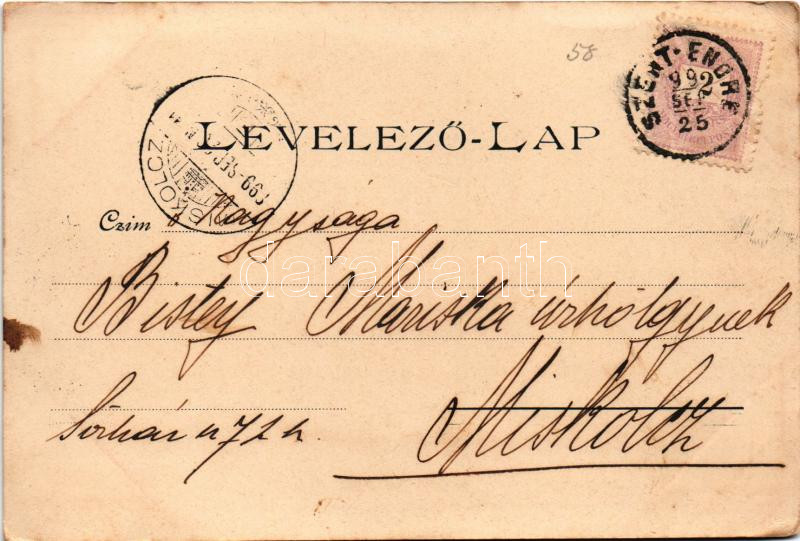 58
SZENT-ENDRE
992
SEP
25
MISKOLCZ
899 SEP
LEVELEZŐ-LAP
Czim Nagysága
Bistey Mariska úrhölgynek
Miskolcz
Sórház u 71 h
darabanth